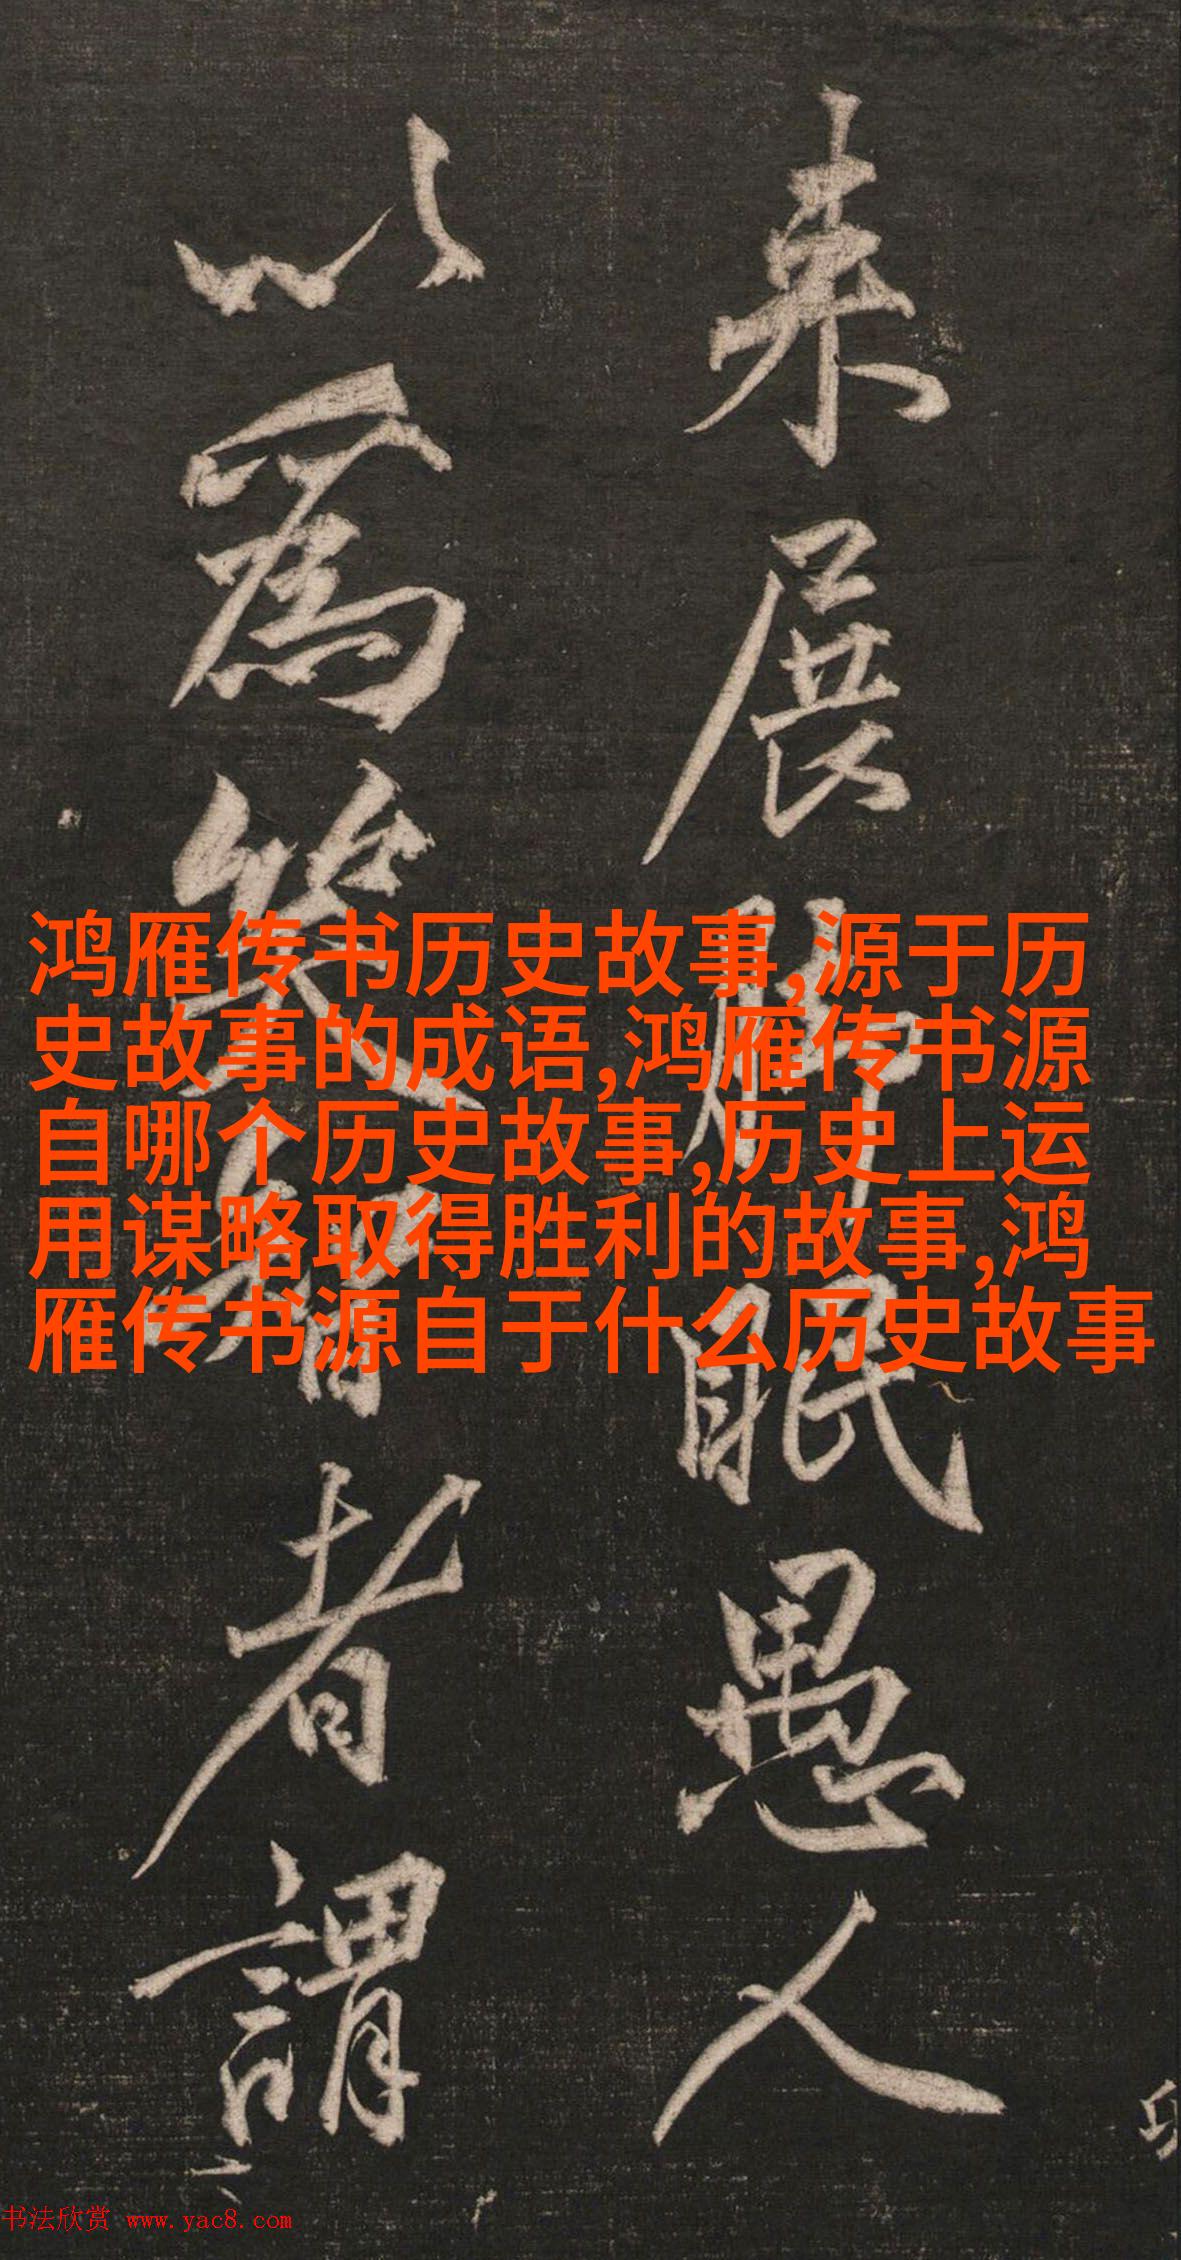 来展脚眠愚人
以為笑智者謂
鸿雁传书历史故事,源于历
史故事的成语,鸿雁传书源
自哪个历史故事,历史上运
用谋略取得胜利的故事,鸿
雁传书源自于什么历史故事
书法欣赏 www.yac8.com